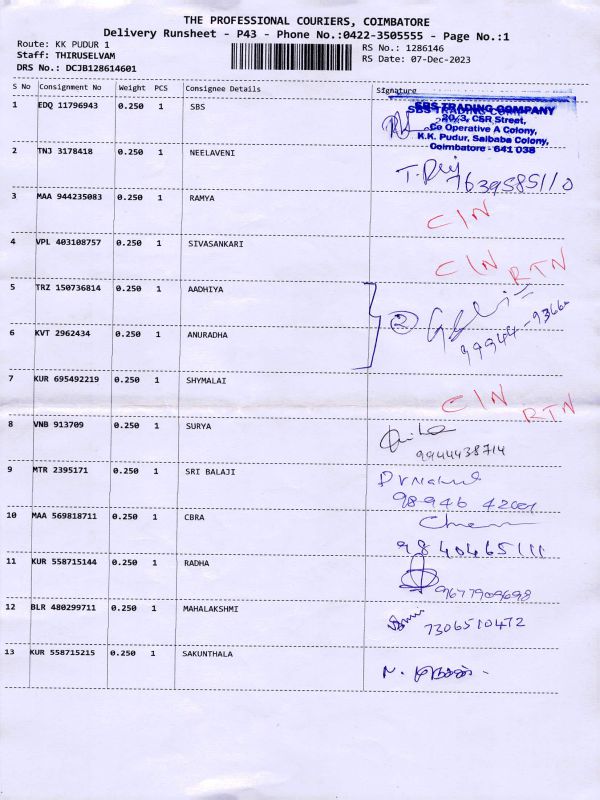 THE PROFESSIONAL COURIERS, COIMBATORE
Delivery Runsheet - P43 - Phone No.:0422-3505555 - Page No.:1
Route: KK PUDUR 1
RS No.: 1286146
Staff: THIRUSELVAM
RS Date: 07-Dec-2023
DRS No.: DCJB128614601
S No Consignment No Weight PCS Consignee Details Signature
1 EDQ 11796943 0.250 1 SBS
SBS TRADING COMPANY
20/3, CSR Street,
Co Operative A Colony,
K.K. Pudur, Saibaba Colony,
Coimbatore - 641 038
2 TNJ 3178418 0.250 1 NEELAVENI
7639585110
3 MAA 944235083 0.250 1 RAMYA
C/N
4 VPL 403108757 0.250 1 SIVASANKARI
C/N RTN
5 TRZ 150736814 0.250 1 AADHIYA
2
6 KVT 2962434 0.250 1 ANURADHA
7 KUR 695492219 0.250 1 SHYMALAI
C/N RTN
8 VNB 913709 0.250 1 SURYA
9944438714
9 MTR 2395171 0.250 1 SRI BALAJI
98946 42001
10 MAA 569818711 0.250 1 CBRA
9840465111
11 KUR 558715144 0.250 1 RADHA
9677909698
12 BLR 480299711 0.250 1 MAHALAKSHMI
7306510472
13 KUR 558715215 0.250 1 SAKUNTHALA